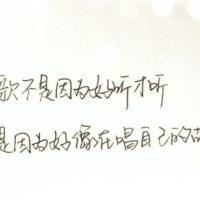 歌不是因为好听才听
是因为好像在唱自己的故